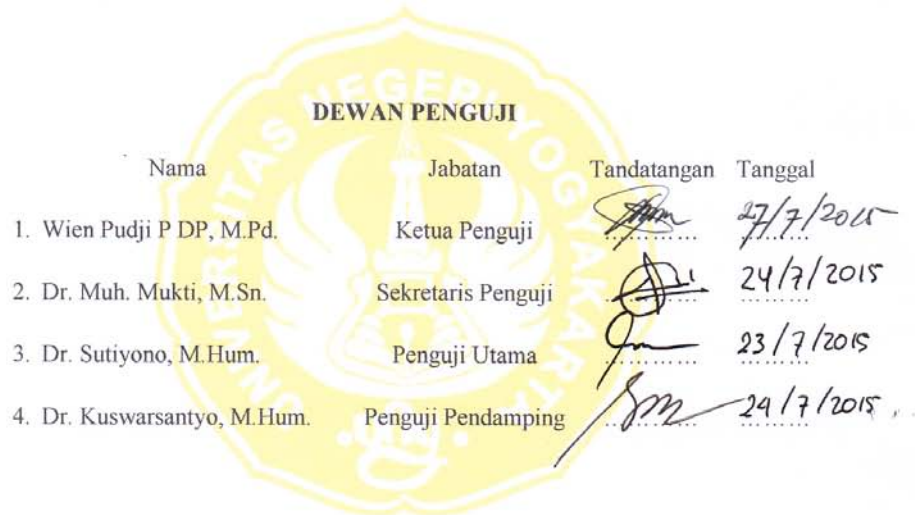 UNIVERSITAS NEGERI YOGYAKARTA
DEWAN PENGUJI
Nama Jabatan Tandatangan Tanggal
1. Wien Pudji P DP, M.Pd. Ketua Penguji ............... 27/7/2015
2. Dr. Muh. Mukti, M.Sn. Sekretaris Penguji ............... 24/7/2015
3. Dr. Sutiyono, M.Hum. Penguji Utama ............... 23/7/2015
4. Dr. Kuswarsantyo, M.Hum. Penguji Pendamping ............... 24/7/2015